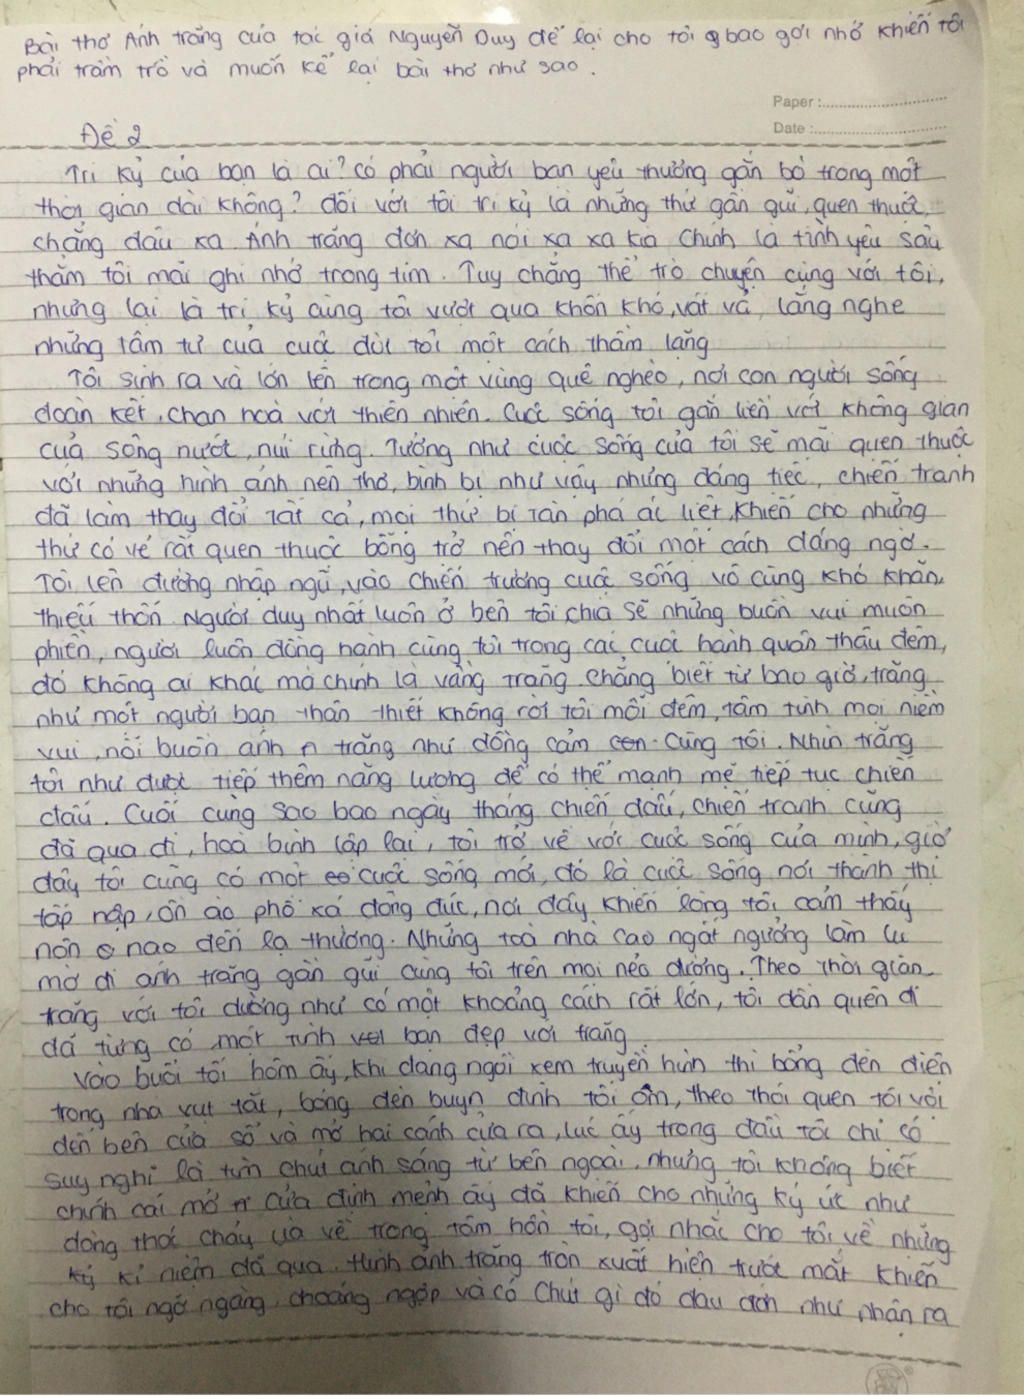 Bài thơ Ánh trăng của tác giả Nguyễn Duy để lại cho tôi bao gợi nhớ khiến tôi
phải trầm trồ và muốn kể lại bài thơ như sao.
Paper :
Date :
Đề 2
Tri kỷ của bạn là ai? có phải người bạn yêu thương gắn bó trong một
thời gian dài không? đối với tôi tri kỷ là những thứ gần gũi, quen thuộc,
chẳng đâu xa. Ánh trăng đơn xa nơi xa xa kia chính là tình yêu sâu
thẳm tôi mãi ghi nhớ trong tim. Tuy chẳng thể trò chuyện cùng với tôi,
nhưng lại là tri kỷ cùng tôi vượt qua khốn khó, vất vả, lắng nghe
những tâm tư của cuộc đời tôi một cách thầm lặng
Tôi sinh ra và lớn lên trong một vùng quê nghèo, nơi con người sống
đoàn kết, chan hoà với thiên nhiên. Cuộc sống tôi gắn liền với không gian
của sông nước, núi rừng. Tưởng như cuộc sống của tôi sẽ mãi quen thuộc
với những hình ảnh nên thơ, bình bị như vậy nhưng đáng tiếc, chiến tranh
đã làm thay đổi tất cả, mọi thứ bị tàn phá ác liệt, khiến cho những
thứ có vẻ rất quen thuộc bỗng trở nên thay đổi một cách đáng ngờ.
Tôi lên đường nhập ngũ, vào chiến trường cuộc sống vô cùng khó khăn,
thiếu thốn. Người duy nhất luôn ở bên tôi chia sẽ những buồn vui muộn
phiền, người luôn đồng hành cùng tôi trong các cuộc hành quân thâu đêm,
đó không ai khác mà chính là vầng trăng. chẳng biết từ bao giờ, trăng
như một người bạn thân thiết không rời tôi mỗi đêm, tâm tình mọi niềm
vui, nỗi buồn ánh trăng như đồng cảm cùng tôi. Nhìn trăng
tôi như được tiếp thêm năng lượng để có thể mạnh mẽ tiếp tục chiến
đấu. Cuối cùng sao bao ngày tháng chiến đấu, chiến tranh cũng
đã qua đi, hoà bình lập lại, tôi trở về với cuộc sống của mình, giờ
đây tôi cũng có một cuộc sống mới, đó là cuộc sống nơi thành thị
tấp nập, ồn ào phố xá đông đúc, nơi đây khiến lòng tôi cảm thấy
nôn nao đến lạ thường. Những toà nhà cao ngất ngưởng làm lu
mờ đi ánh trăng gần gũi cùng tôi trên mọi nẻo đường. Theo thời gian
trăng với tôi dường như có một khoảng cách rất lớn, tôi dần quên đi
đã từng có một tình bạn đẹp với trăng.
Vào buổi tối hôm ấy, khi đang ngồi xem truyền hình thì bỗng đèn điện
trong nhà vụt tắt, bóng đèn buyn đinh tối om, theo thói quen tôi vội
đến bên cửa sổ và mở hai cánh cửa ra, lúc ấy trong đầu tôi chỉ có
suy nghĩ là tìm chút ánh sáng từ bên ngoài, nhưng tôi không biết
chính cái mở cửa định mệnh ấy đã khiến cho những ký ức như
dòng thác chảy ùa về trong tâm hồn tôi, gợi nhắc cho tôi về những
kỷ niệm đã qua. Hình ảnh trăng tròn xuất hiện trước mắt khiến
cho tôi ngỡ ngàng, choáng ngợp và có chút gì đó đau đớn như nhận ra